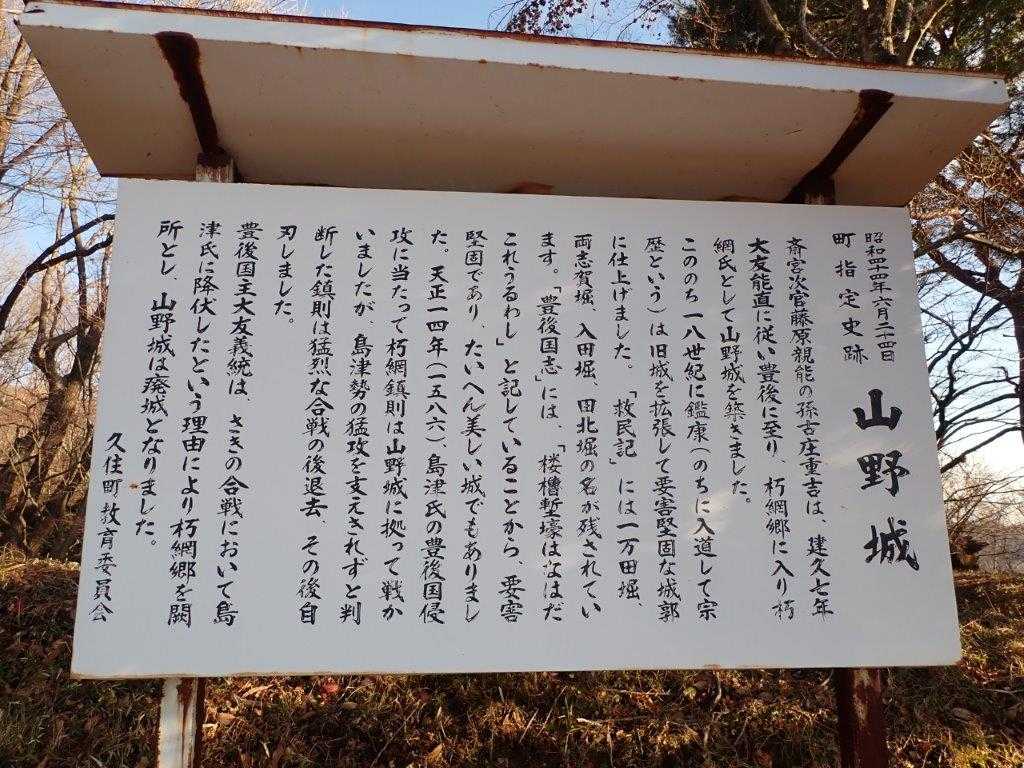 昭和四十四年六月二十四日
町指定史跡
山野城
斎宮次官藤原親能の孫古庄重吉は、建久七年
大友能直に従い豊後に至り、朽網郷に入り朽
網氏として山野城を築きました。
こののち一八世紀に鑑康(のちに入道して宗
歴という)は旧城を拡張して要害堅固な城郭
に仕上げました。「救民記」には一万田堀、
両志賀堀、入田堀、田北堀の名が残されてい
ます。「豊後国志」には、「楼櫓塹壕はなはだ
これうるわし」と記していることから、要害
堅固であり、たいへん美しい城でもありまし
た。天正一四年(一五八六)、島津氏の豊後国侵
攻に当たって朽網鎮則は山野城に拠って戦か
いましたが、島津勢の猛攻を支えきれずと判
断した鎮則は猛烈な合戦の後退去、その後自
刃しました。
豊後国主大友義統は、さきの合戦において島
津氏に降伏したという理由により朽網郷を闕
所とし、山野城は廃城となりました。
久住町教育委員会